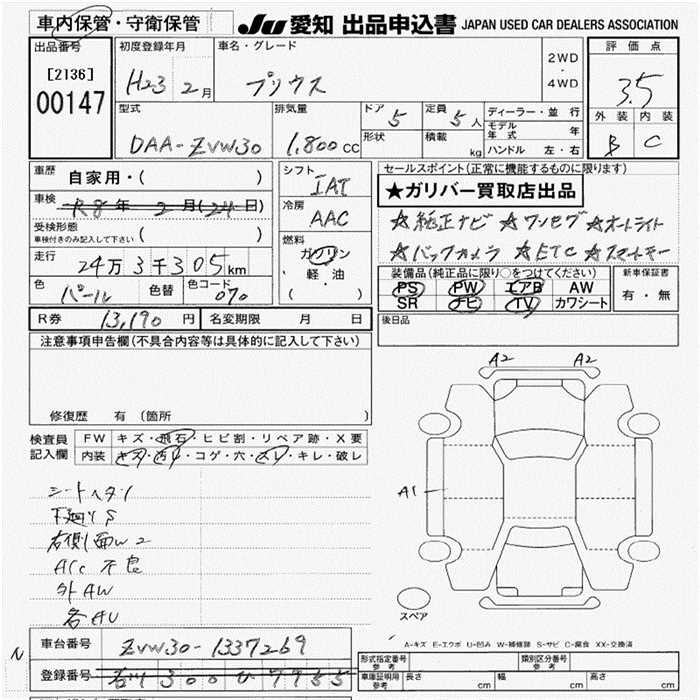 車内保管・守衛保管
JU 愛知 出品申込書 JAPAN USED CAR DEALERS ASSOCIATION
出品番号
[2136]
00147
初度登録年月
H23 2月
車名・グレード
プリウス
2WD
・
4WD
評価点
3.5
外装 内装
B C
型式
DAA-ZVW30
排気量
1,800cc
ドア 5
定員 5人
形状
積載 kg
ディーラー・並行
モデル年式 年
ハンドル 左・右
車歴 自家用・( )
車検 R8年 2月(24日)
受検形態
車検付きのみ記入して下さい ( )
走行 24万3千305km
色 パール 色替 色コード 070
シフト IAT
冷房 AAC
燃料
ガソリン
軽・油
( )
セールスポイント(正常に機能するものに限ります)
★ガリバー買取店出品
☆純正ナビ ☆ワンセグ ☆オートライト
☆バックカメラ ☆ETC ☆スマートキー
装備品(純正品に限り○をつけてください)
PS PW エアB AW
SR ナビ TV カワシート
新車保証書
有・無
R券 13,190円 名変期限 月 日
後日品
注意事項申告欄(不具合内容等は具体的に記入して下さい)
修復歴 有(箇所 )
検査員記入欄
FW キズ・飛石・ヒビ割・リペア跡・X要
内装 キズ・汚れ・コゲ・穴・スレ・キレ・破レ
シートヘタリ
下廻りS
右側面W2
ACC不良
外AW
各AU
A2 A2
A1
スペア
A-キズ E-エクボ U-凹み W-補修跡 S-サビ C-腐食 XX-交換済
N
車台番号 ZVW30-1337269
登録番号 300 ひ 7955
形式指定番号 参考
類別区分番号 参考
車庫証明用 参考 長さ cm 幅 cm 高さ cm